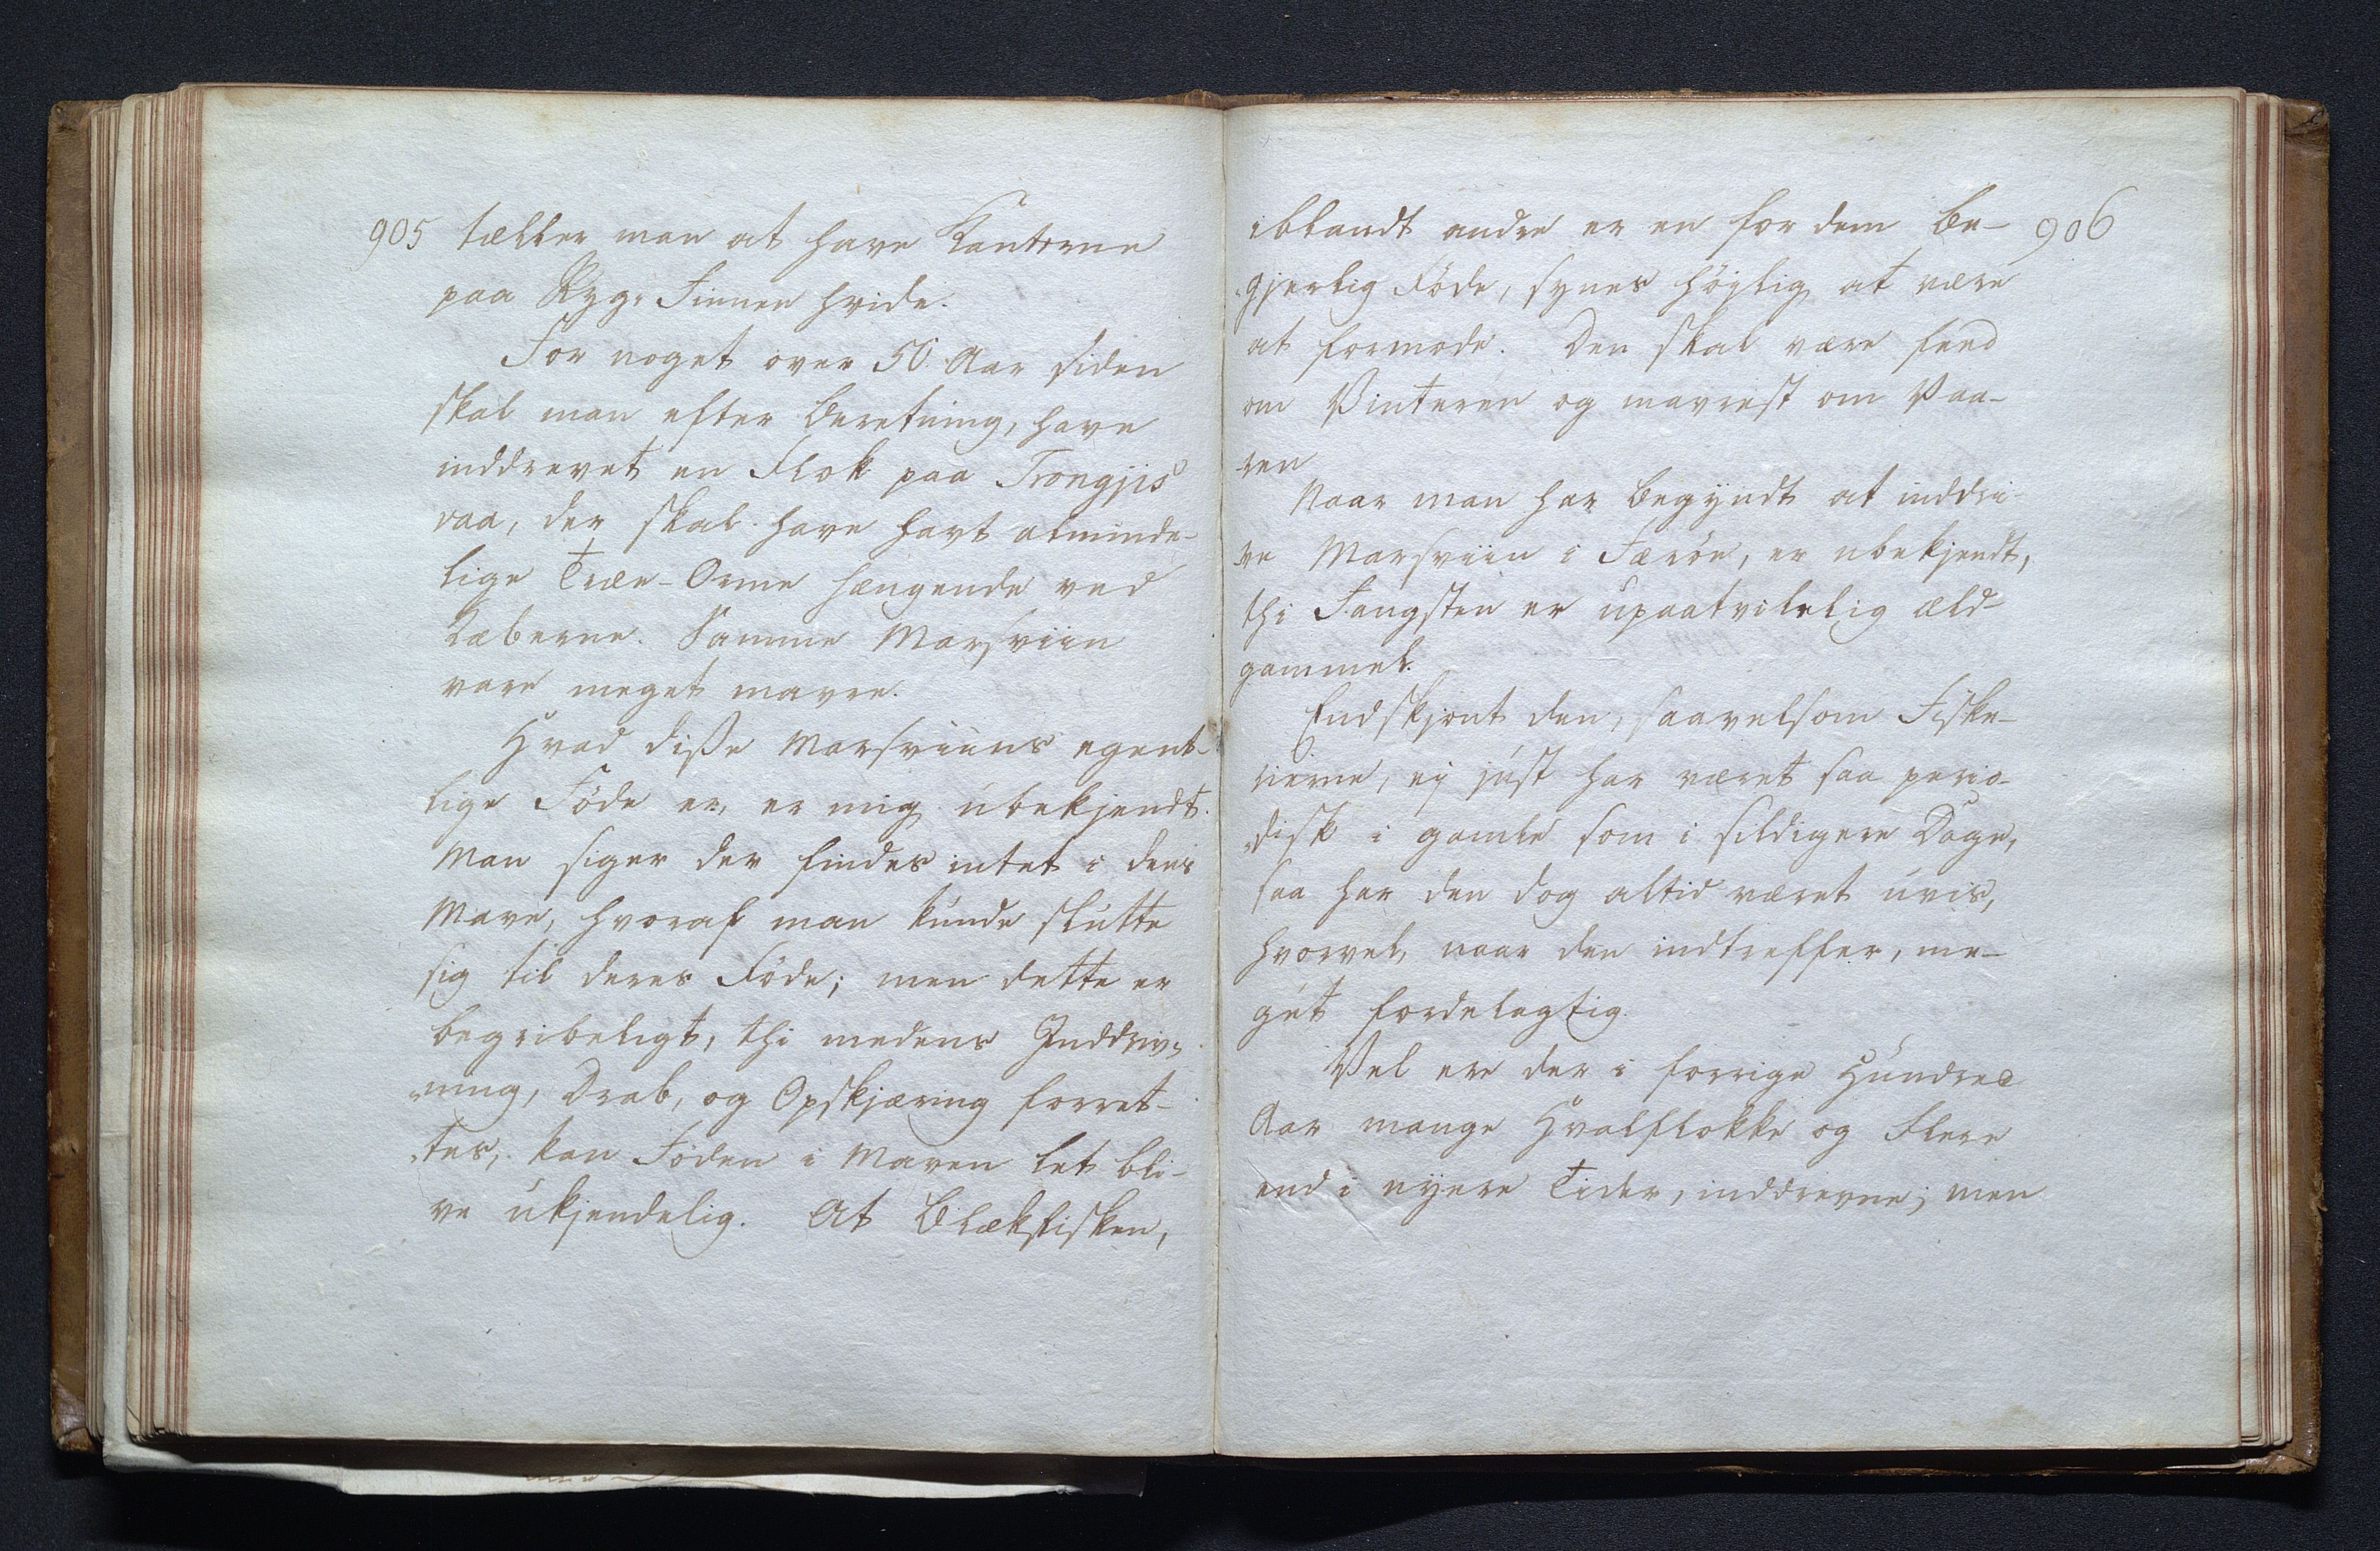 905 tæller man at have Kanterne
paa Ryg-Finnen hvide.
For noget over 50 Aar siden
skal man efter Beretning, have
inddrevet en Flok paa Trongjis
vaa, der skal have havt alminde-
lige Træe-Orme hængende ved
Læberne. Samme Marsviin
vare meget mavre.
Hvad disse Marsviins egent-
lige Föde er, er mig ubekjendt.
Man siger der findes intet i dens
Mave, hvoraf man kunde slutte
sig til deres Föde; men dette er
begribeligt, thi medens Inddriv-
ning, Drab, og Opskjæring forret-
tes, kan Föden i Maven let bli-
ve ukjendelig. At Blækfisken,
iblandt andre er en for dem be- 906
gjerlig Föde, synes höjlig at være
at formode. Den skal være feed
om Vinteren og mavrest om Vaa-
ren
Naar man har begyndt at inddri-
ve Marsviin i Færöe, er ubekjendt,
thi Fangsten er upaatvilelig æld-
gammel.
Endskjönt den, saavelsom Fiske-
rierne, ej just har været saa perio-
disk i gamle som i sildigere Dage,
saa har den dog altid været uvis,
hvorvel, naar den indtreffer, me-
get fordelagtig.
Vel ere der i forrige Hundred
Aar mange Hvalflokke og Flere
end i nyere Tider, inddrevne; men